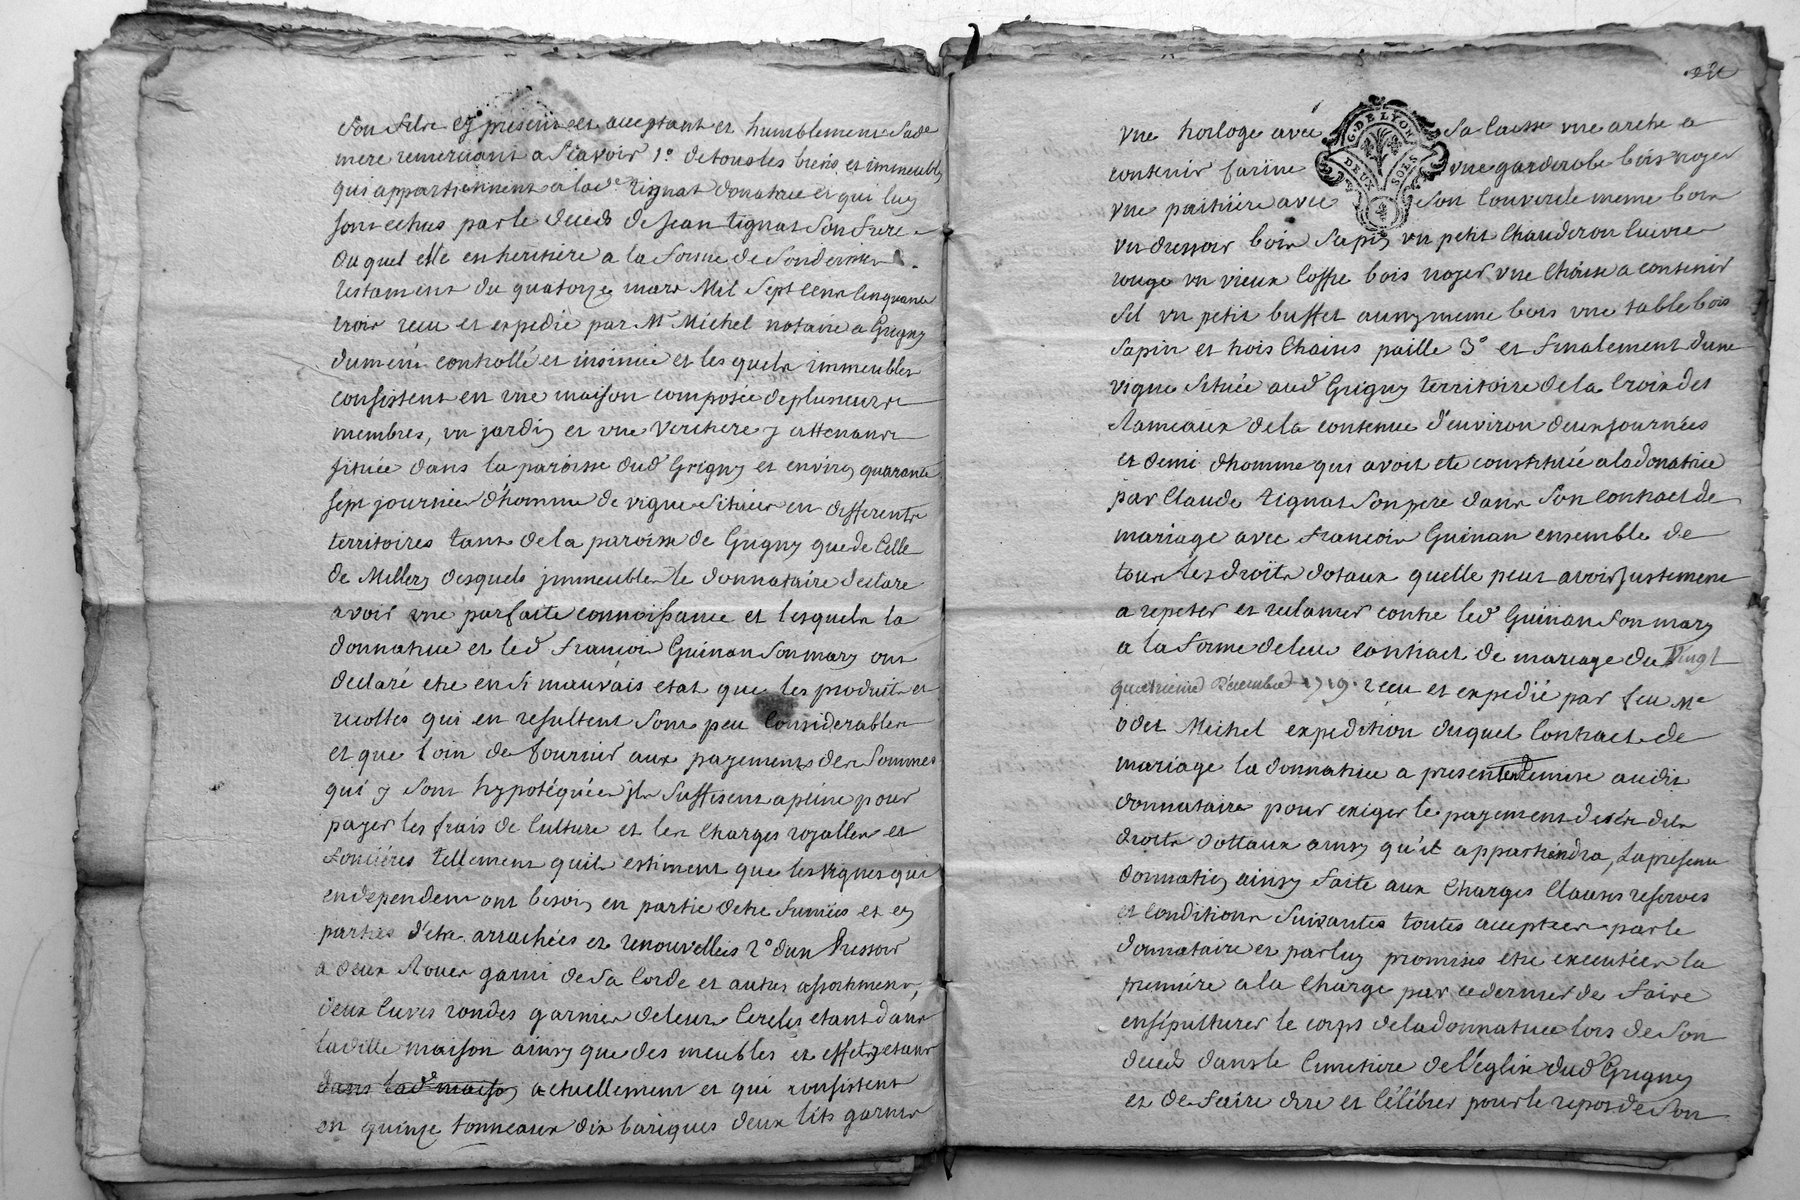 son filse cy present et acceptant et humblement sade
mere remerciant a Scavoir 1° de tous les biens et immeubles
qui appartiennent a lad.e tignat donatrice et qui luy
sont echus par le deced de Jean tignat son frere
duquel elle en heritiere a la forme de son dernier
testament du quatorze mars Mil Sept Cent Cinquante
trois recu et expedié par Me Michel notaire a Grigny
dument controllé et insinué et les quels immeubles
consistent en une maison composée de plusieurs
membres, un jardin et une verchere y attenants
située dans la paroisse dud Grigny et environ quarante
sept journées d'homme de vigne situées en differents
territoires tant de la paroisse de Grigny que de Celle
de Millery desquels jmmeubles le donnataire declare
avoir une parfaite connoissance et lesquels la
donnatrice et led François Guinan son mary ont
declaré etre en si mauvais etat que les produits et
recoltes qui en resultent sont peu Considerables
et que loin de fournir aux payements des Sommes
qui y sont hypotéquées jls suffisent a peine pour
payer les frais de Culture et les Charges royalles et
foncières tellement quils estiment que les vignes qui
en dependent ont besoin en partie detre fumées et en
parties d'etre arrachées et renouvellées 2° d'un Pressoir
a deux Roues garni de sa Corde et autres assortiments,
deux Cuves rondes garnies de leurs Cercles etant dans
laditte maison ainsy que des meubles et effets etant
dans lad.e maison actuellement et qui consistent
en quinze tonneaux dix bariques deux lits garnis
une horloge avec sa Caisse une arche a
contenir farine une garderobe bois noyer
une paitriere avec son Couvercle meme bois
un dressoir bois Sapin un petit Chauderon Cuivre
rouge un vieux Coffre bois noyer une Chaise a contenir
Sel un petit buffet aussy meme bois une table bois
Sapin et trois Chaises paille 3° et finalement dune
vigne Située aud Grigny territoire de la Croix des
Rameaux de la contenue d'environ deux journées
et demi dhomme qui avoit ete constituée a la donatrice
par Claude tignat son pere dans son Contract de
mariage avec François Guinan ensemble de
tous les droits dotaux quelle peut avoir justement
a repeter et reclamer contre led Guinan son mary
a la forme de leur contract de mariage du Vingt
quatrieme Décembre 1719. recu et expedié par feu Me
odet Michel expedition duquel Contract de
mariage la donnatrice a presentement remise audit
donnataire pour exiger le payement desdits
droits dottaux ainsy qu'il appartiendra, La presente
donnation ainsy faite aux Charges Clauses reserves
et Conditions Suivantes toutes acceptées par le
donnataire et par luy promises etre executées la
première a la Charge par ce dernier de faire
ensépulturer le corps de la donnatrice lors de son
deced dans le Cimetiere de l'eglise dud Grigny
et de faire dire et Célébrer pour le repos de son
G. DE LYON
DEUX SOLS